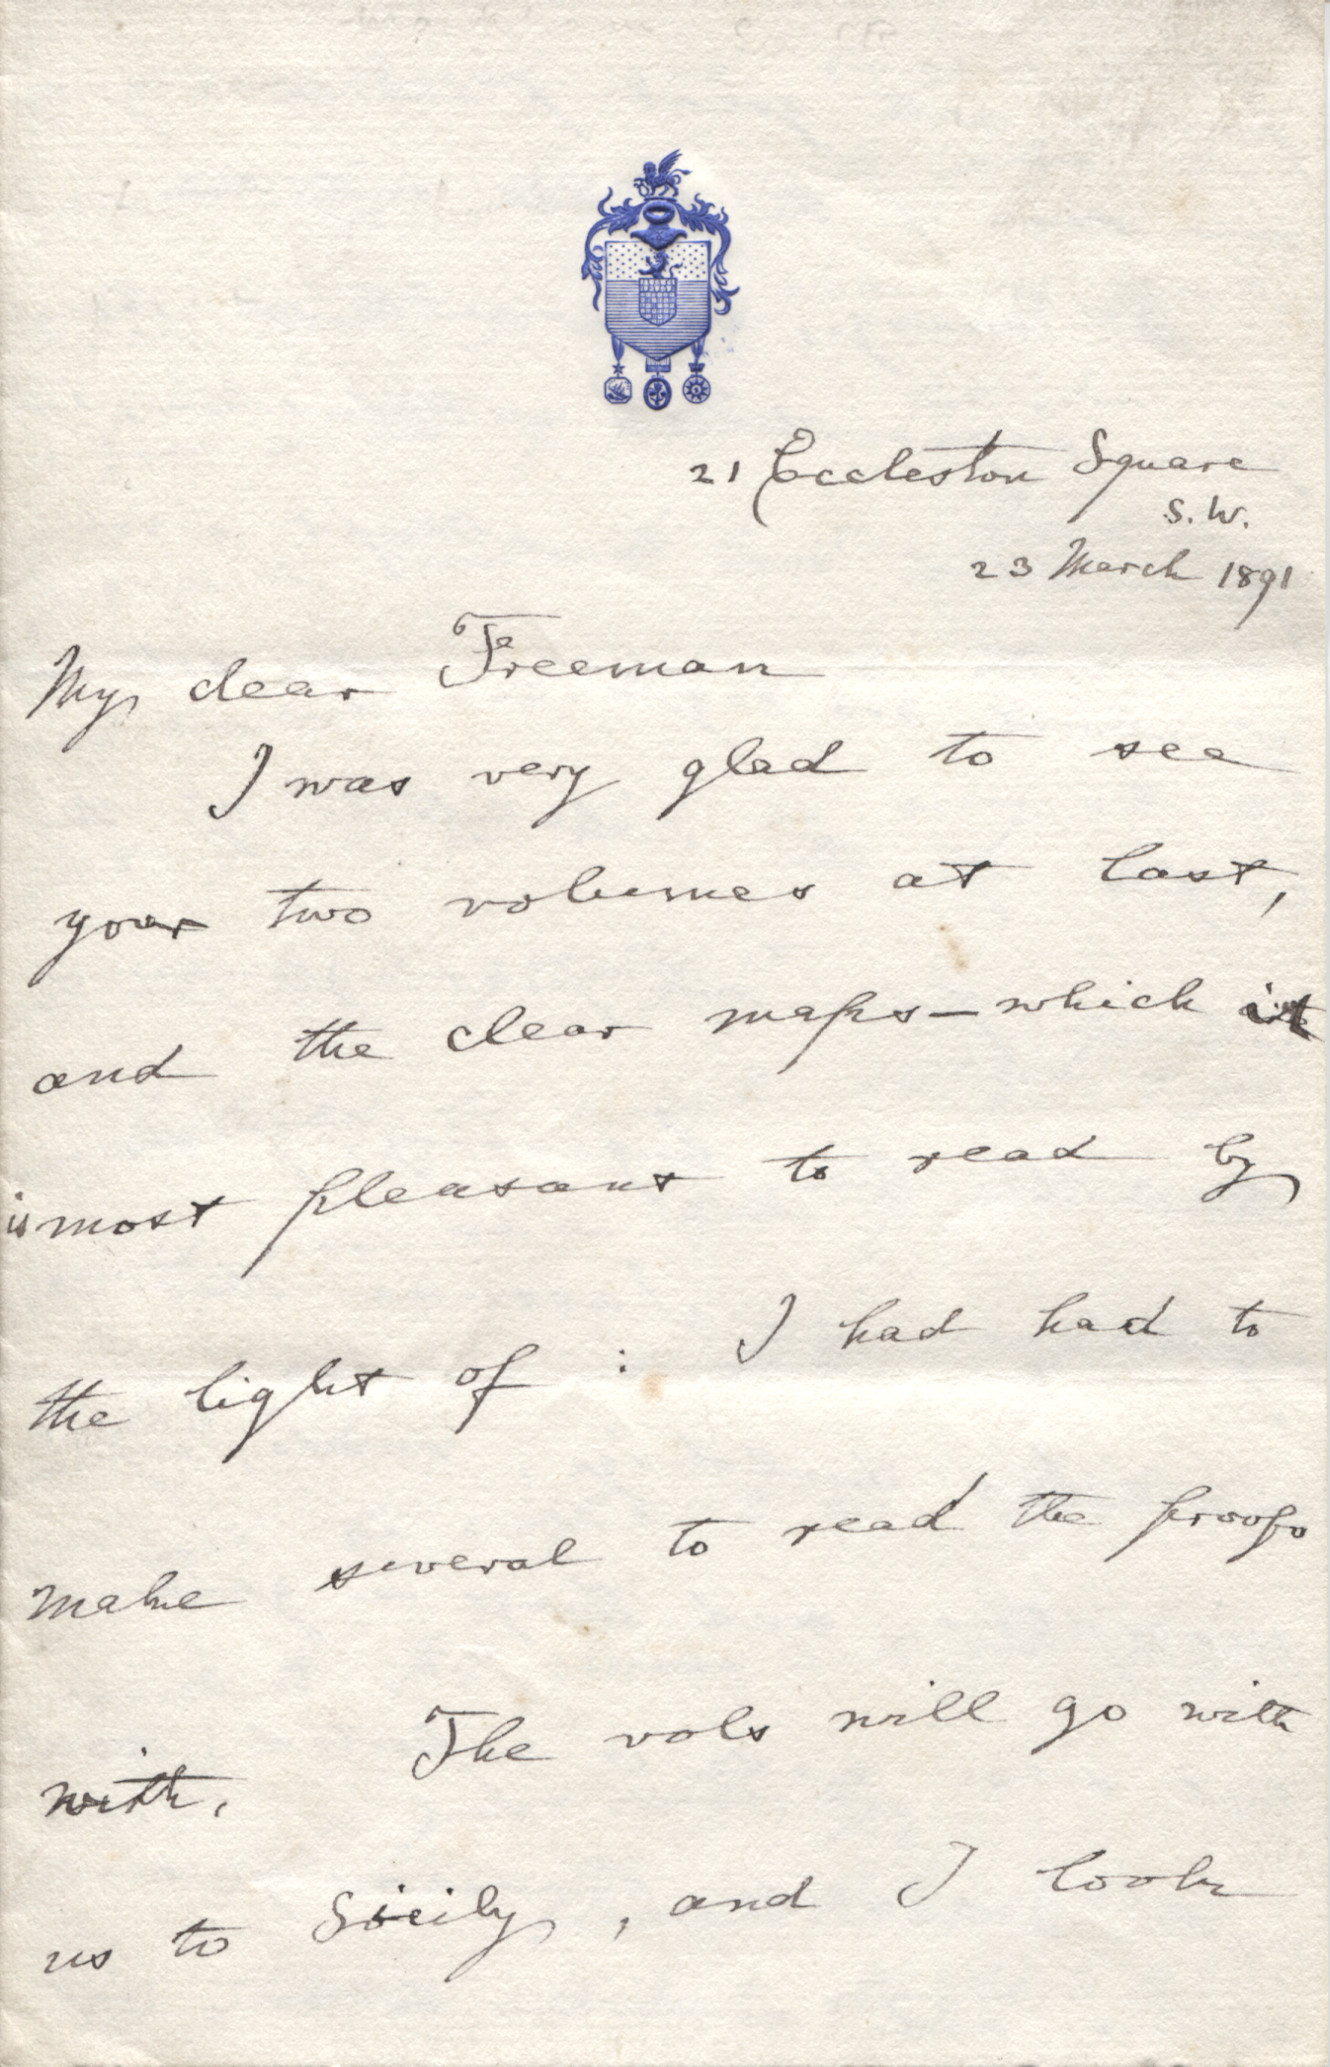 21 Eccleston Square
S.W.
23 March 1891
My dear Freeman
I was very glad to see
your two volumes at last,
and the clear maps – which it
is most pleasant to read by
the light of : I had had to
make several to read the proofs
with. The vols will go with
us to Sicily, and I look